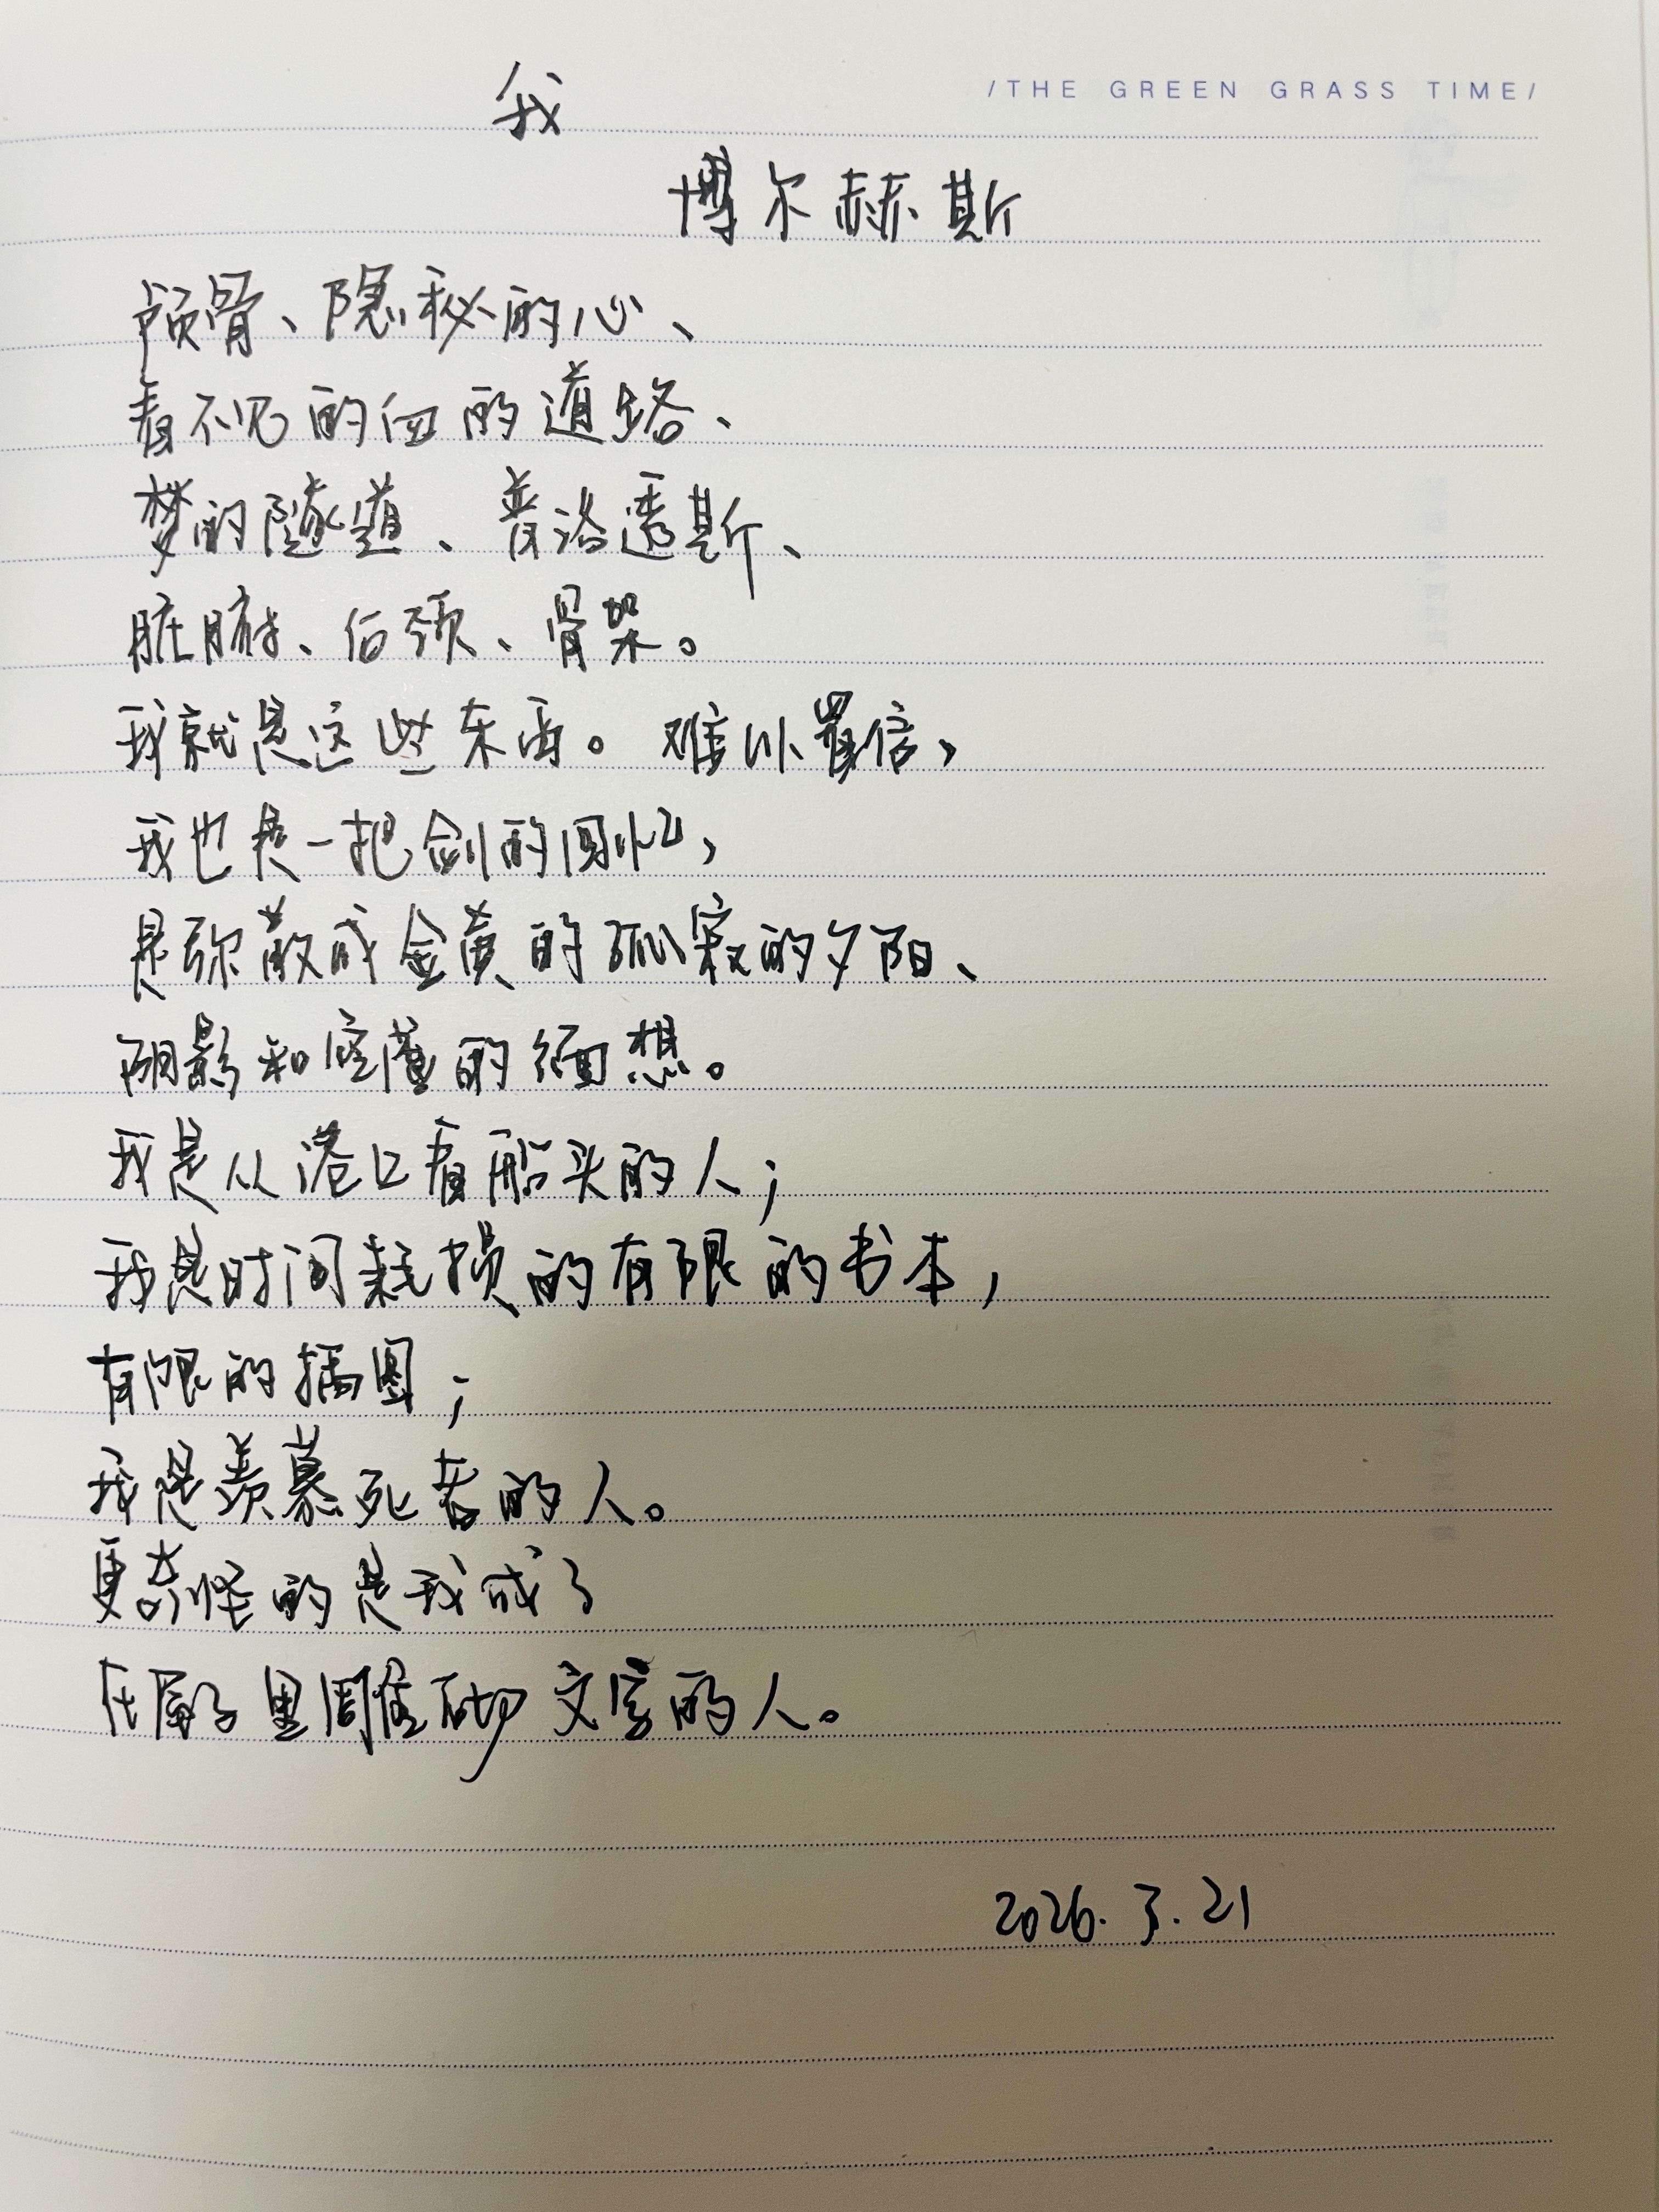 /THE GREEN GRASS TIME/
我
博尔赫斯
颅骨、隐秘的心、
看不见的血的道路、
梦的隧道、普洛透斯、
脏腑、后颈、骨架。
我就是这些东西。难以置信，
我也是一把剑的回忆，
是弥散成金黄的孤寂的夕阳、
阴影和空虚的缅想。
我是从港口看船头的人；
我是时间耗损的有限的书本，
有限的插图；
我是羡慕死者的人。
更奇怪的是我成了
在屋子里雕砌文字的人。
2026.3.21